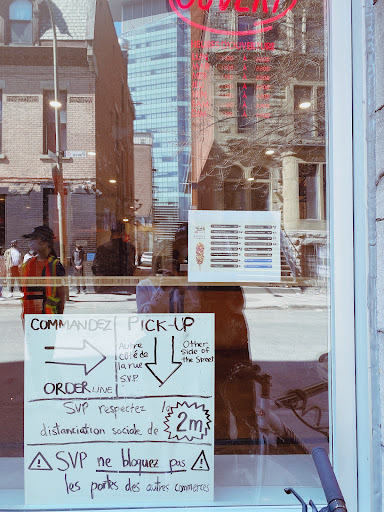 OUVERT
COMMANDEZ
PICK-UP
Autre
côté de
la rue
S.V.P.
Other
side of
the street
ORDER LINE
SVP respectez la
distanciation sociale de
2m
SVP ne bloquez pas
les portes des autres commerces